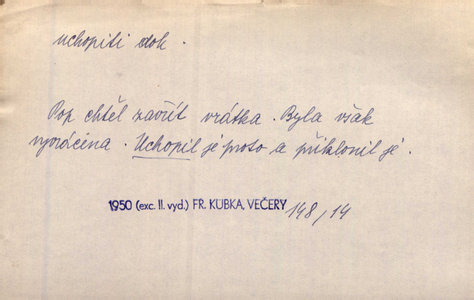 uchopiti dok.
Pop chtěl zavřít vrátka. Byla však
vyvrácena. Uchopil je proto a přiklonil je.
1950 (exc. II. vyd.) FR. KUBKA, VEČERY 148/14